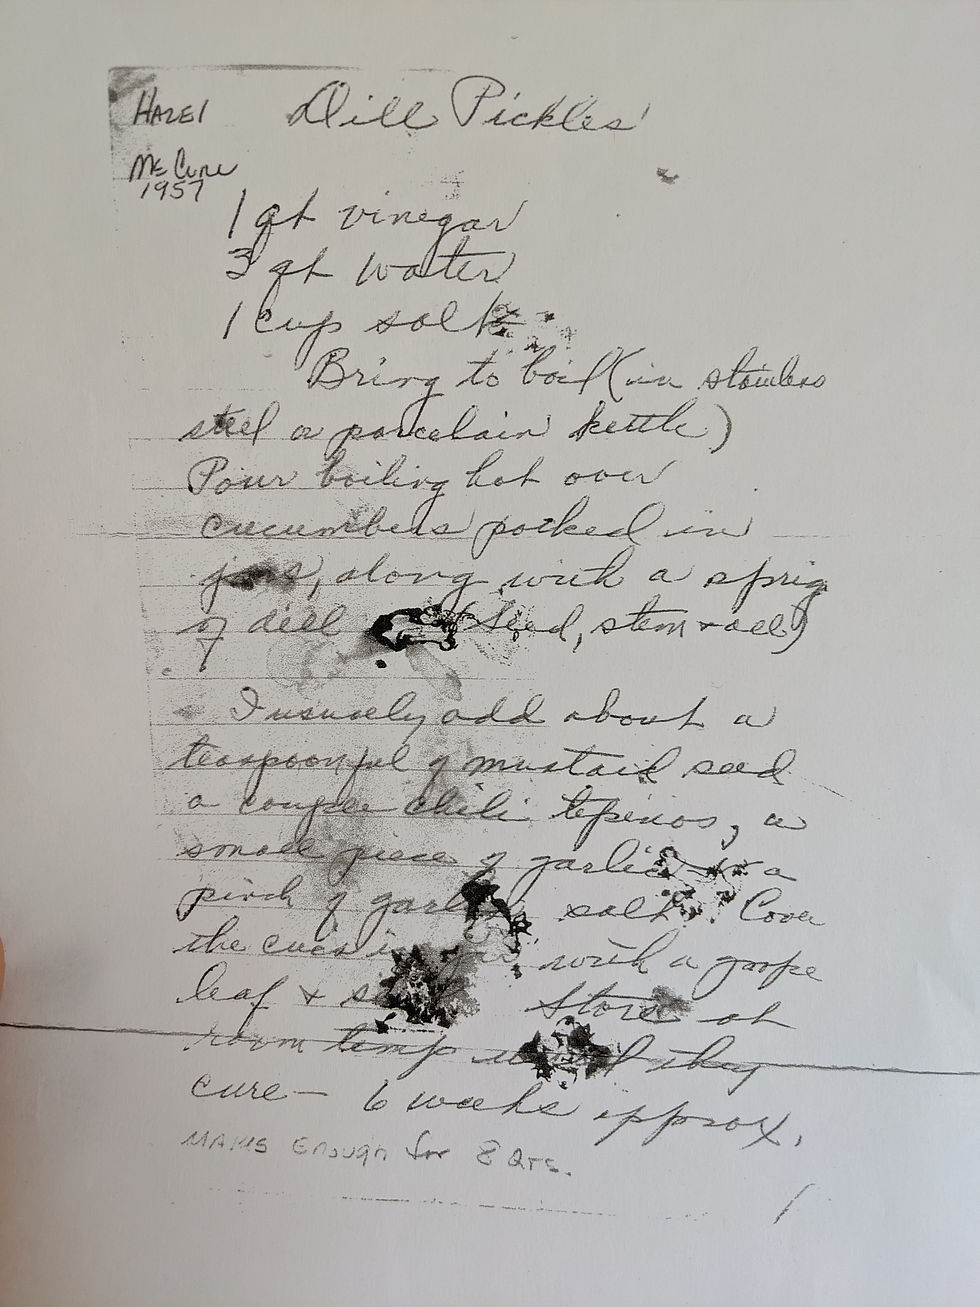 Hazel Dill Pickles
1957
1 qt vinegar
3 qt water
1 cup salt
Bring to boil (in stainless
steel or porcelain kettle)
Pour boiling hot over
cucumbers packed in
jars, along with a sprig
of dill (seed, stem & all)
I usually add about a
teaspoonful of mustard seed
a couple chili tepinos, a
small piece of garlic or a
pinch of garlic salt. Cover
the cucs in jar with a grape
leaf & Store at
room temp until they
cure — 6 weeks approx.
Makes Enough for 8 Qts.